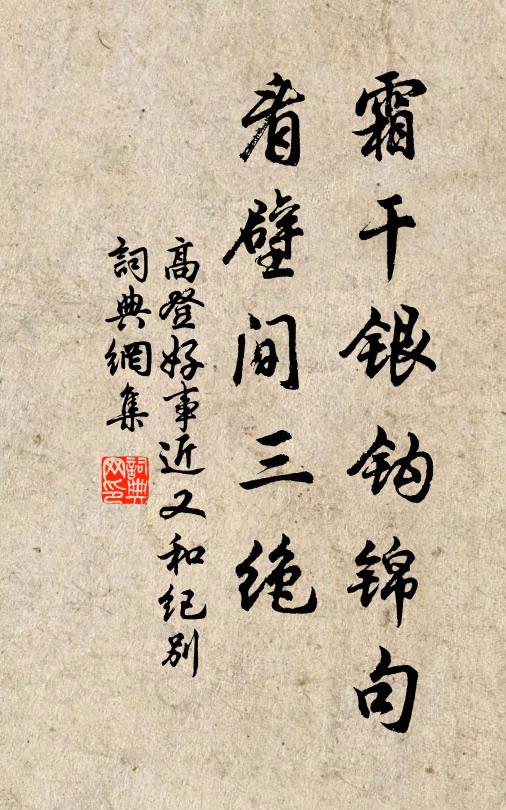 霜干银钩锦句
看壁间三绝
高登好事近又和纪别
詞典網集
詞典
网印